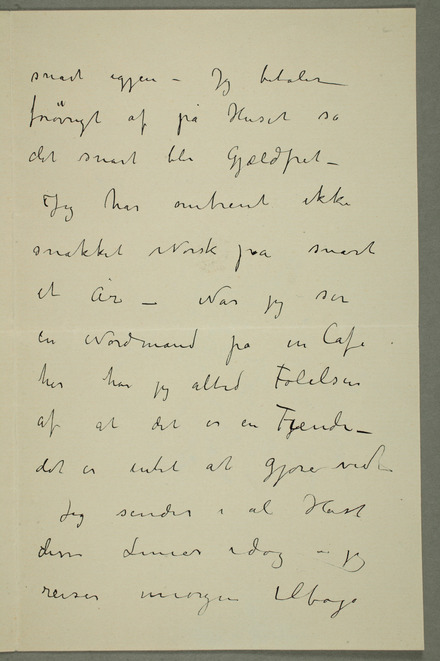 snart igjen – Jeg betaler
forövrigt af på Huset så
det snart bli Gjældfrit –
Jeg har omtrent ikke
snakket Norsk på snart
et År – Når jeg ser
en Nordmand på en Cafe
her har jeg altid Følelsen
af at det er en Fjende –
det er intet at gjøre ved
Jeg sender i al Hast
disse Linier idag – jeg
reiser imorgen tilbage